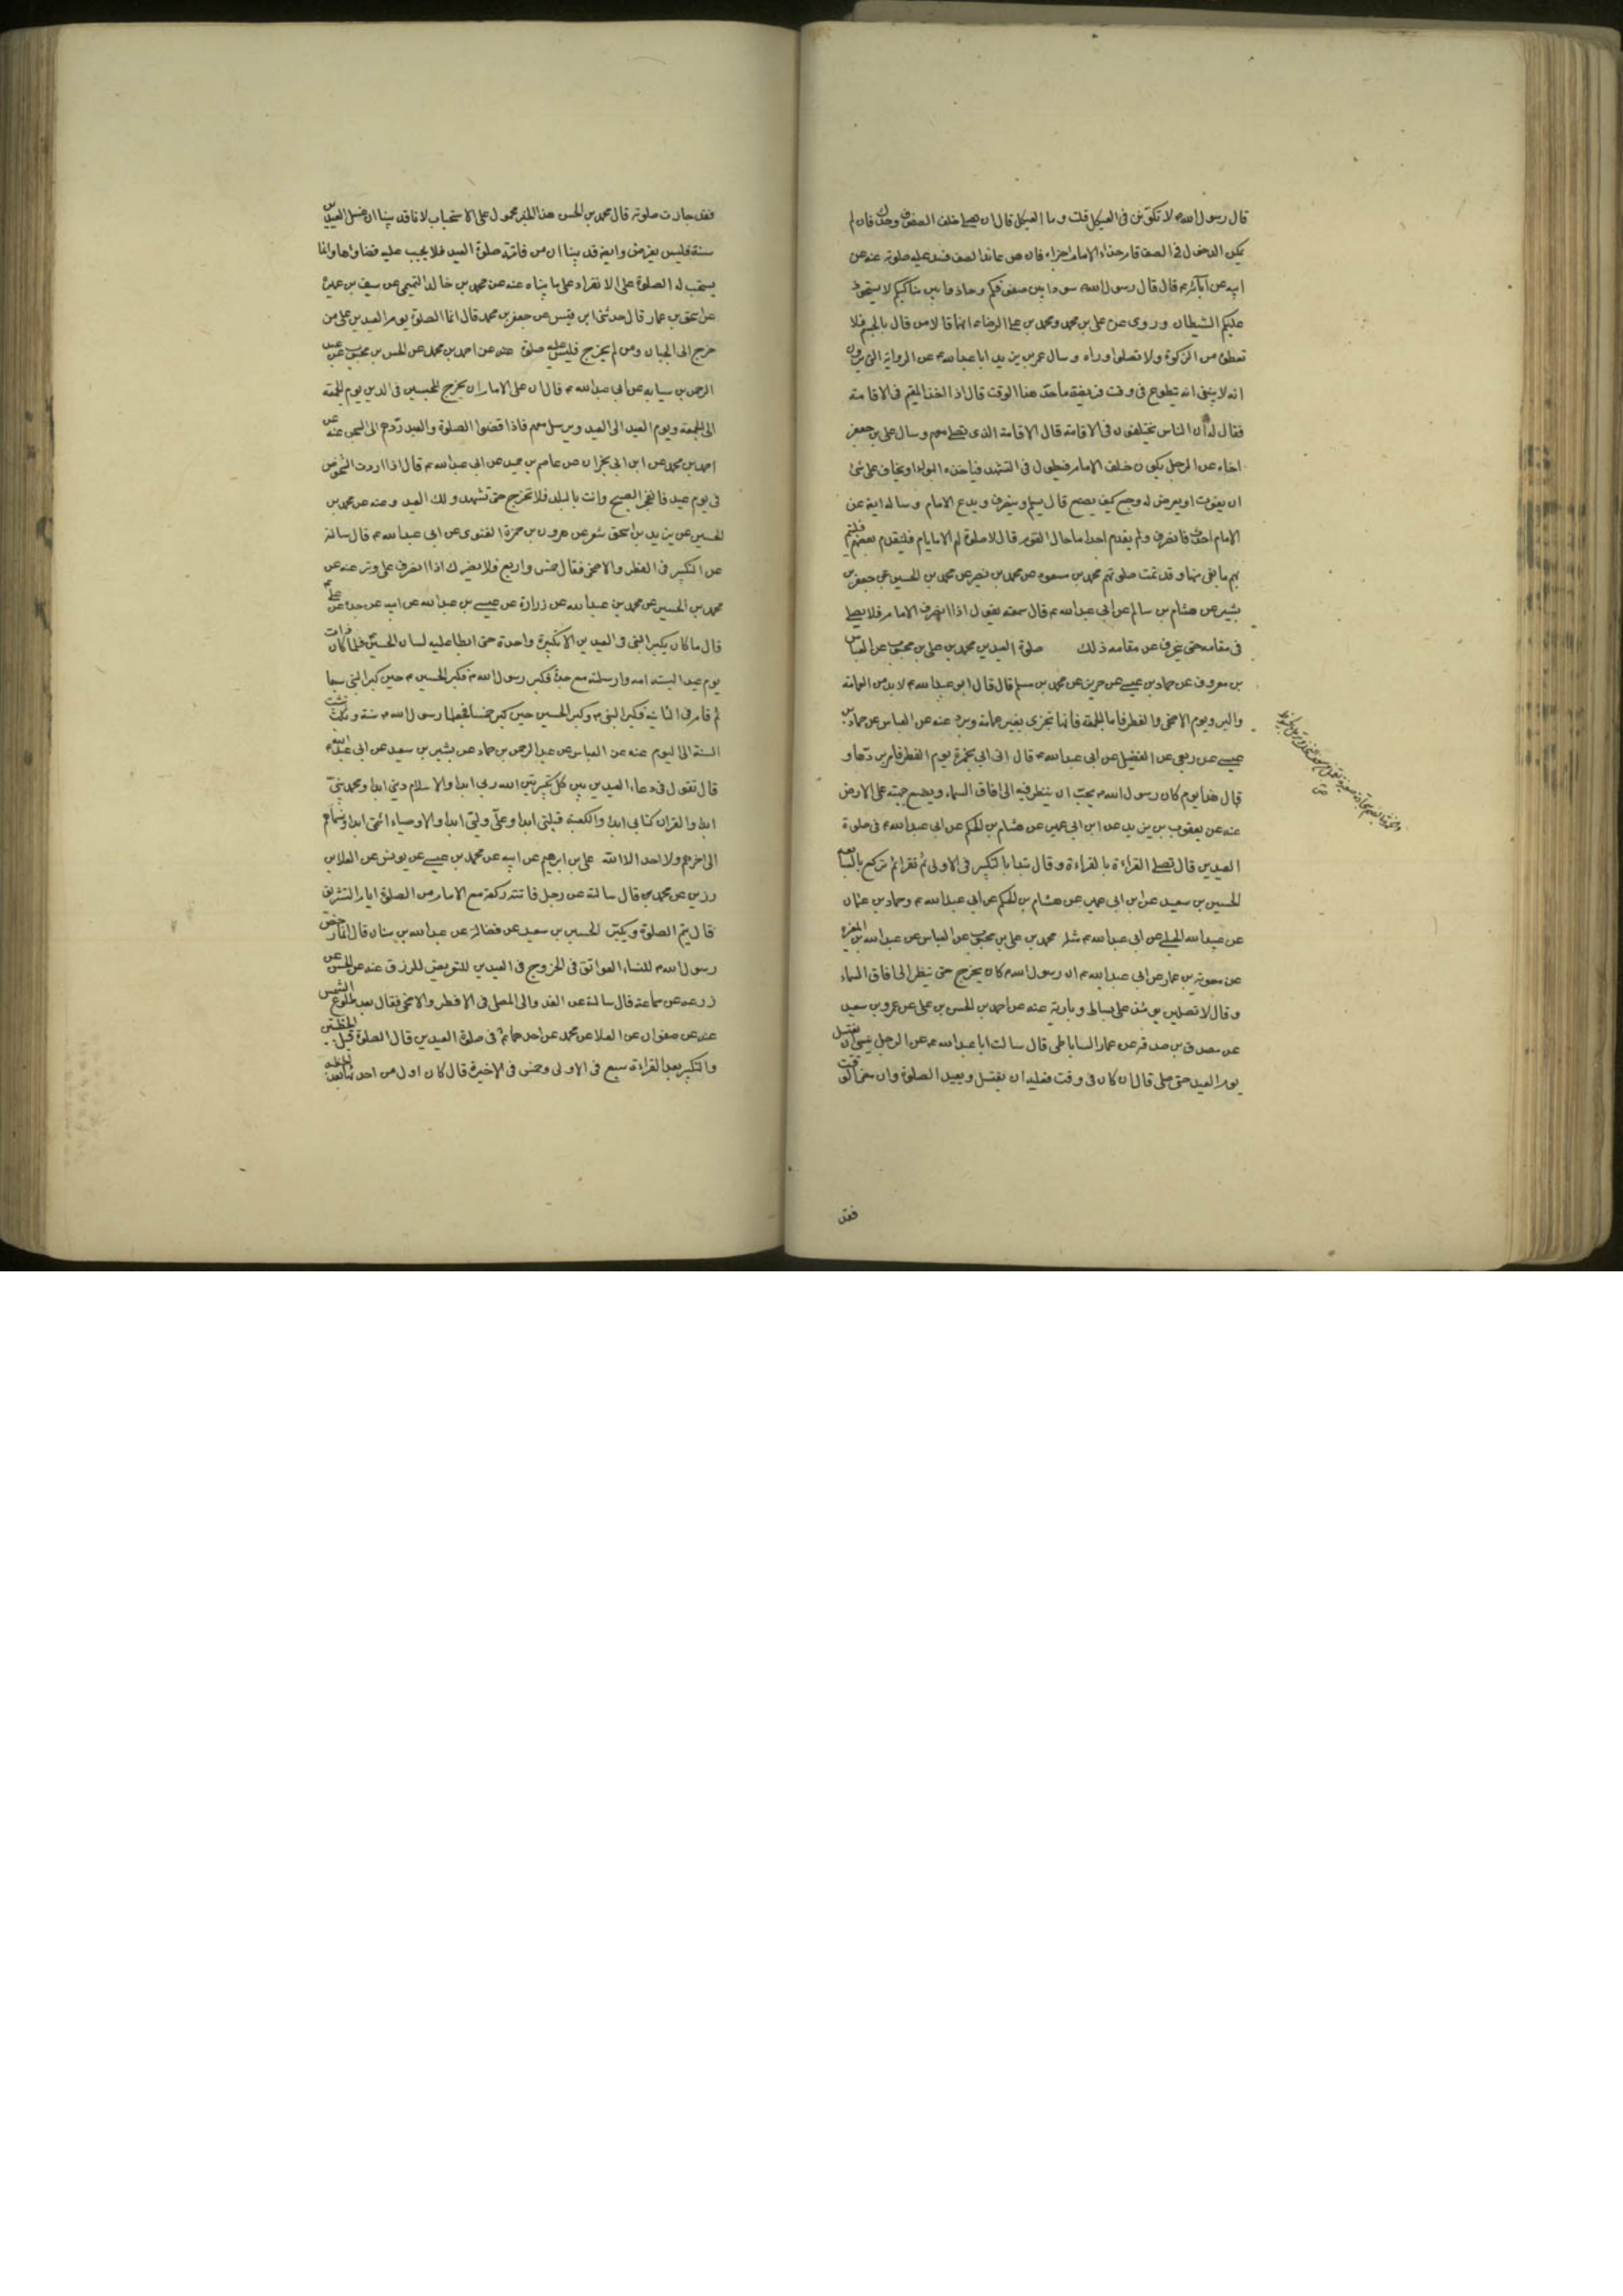 قال رسول الله ص لا تكونن فى العيكل قلت وما العيكل قال ان تصلى خلف الصفوف وحدك فان لم
يمكن الدخول فى الصف قام حذاء الامام اجزاه فان هو عاند الصف فسد عليه صلوته عنه عن
ابيه عن آبائه قال قال رسول الله سووا بين صفوفكم وحاذوا بين مناكبكم لا يستحوذ
عليكم الشيطان وروى عن على بن محمد ومحمد بن على الرضا انهما قالا من قال بالجسم فلا
تعطوه من الزكوة ولا تصلوا وراه وسال عمر بن يزيد ابا عبد الله ع عن الرواية التى يروون
انه لا ينبغى انه تطوع فى وقت فريضة ما حد هذا الوقت قال اذا اخذ المقيم فى الاقامة
فقال له ان الناس يختلفون فى الاقامة قال الاقامة الذى تصلى معهم وسال على بن جعفر
اخاه عن الرجل يكون خلف الامام فيطول فى التشهد فياخذه البول او يخاف على شئ
ان يفوت او يعرض له وجع كيف يصنع قال يسلم وينصرف ويدع الامام وساله ايضا عن
الامام احدث فانصرف ولم يقدم احدا ما حال القوم قال لا صلوة لهم الا بامام فليتقدم بعضهم فليتم
بهم ما بقى منها وقد تمت صلوتهم محمد بن مسعود عن محمد بن نصير عن محمد بن الحسين عن جعفر بن
بشير عن هشام بن سالم عن ابى عبد الله ع قال سمعته يقول اذا انصرف الامام فلا يصلى
فى مقامه حتى ينحرف عن مقامه ذلك صلوة العيدين محمد بن على بن محبوب عن العباس
بن معروف عن حماد بن عيسى عن حريز عن محمد بن مسلم قال قال ابو عبد الله ع لا بد من العمامة
والبرد يوم الاضحى والفطر فاما الجمعة فانها تجزى بغير عمامة وبرد عنه عن العباس عن حماد بن
عيسى عن ربعى عن الفضيل عن ابى عبد الله ع قال اتى ابى بخمرة يوم الفطر فامر بردها و
قال هذا يوم كان رسول الله ص يحب ان ينظر فيه الى افاق السماء ويضع جبهته على الارض
عنه عن يعقوب بن يزيد عن ابن ابى عمير عن هشام بن الحكم عن ابى عبد الله ع فى صلوة
العيدين قال تصلى القراءة بالقراءة وقال تبدا بالتكبير فى الاولى ثم تقرا ثم تركع بالسابعة
الحسين بن سعيد عن ابن ابى عمير عن هشام بن الحكم عن ابى عبد الله ع وحماد بن عثمان
عن عبيد الله الحلبى عن ابى عبد الله ع مثله محمد بن على بن محبوب عن العباس عن عبد الله بن المغيرة
عن معوية بن عمار عن ابى عبد الله ع ان رسول الله ص كان يخرج حتى ينظر الى افاق السماء
وقال لا تصلين يومئذ على بساط و بارية عنه عن احمد بن الحسن بن على عن عمرو بن سعيد
عن مصدق بن صدقة عن عمار الساباطى قال سالت ابا عبد الله ع عن الرجل ينسى ان يغتسل
يوم العيد حتى صلى قال ان كان فى وقت فعليه ان يغتسل ويعيد الصلوة وان مضى الوقت
فقد
فقد جازت صلوته قال محمد بن الحسن هذا الخبر محمول على الاستحباب لانا قد بينا ان غسل العيدين
سنة فليس بفرض وايضا قد بينا ان من فاتته صلوة العيد فلا يجب عليه قضاؤها وانما
يستحب له الصلوة على الانفراد على ما بيناه عنه عن محمد بن خالد التميمى عن سيف بن عميرة
عن اسحق بن عمار قال حدثنى ابن قيس عن جعفر بن محمد قال انما الصلوة يوم العيدين على من
خرج الى الجبان ومن لم يخرج فليس عليه صلوة عنه عن احمد بن محمد عن الحسن بن محبوب عن عبد
الرحمن بن سيابه عن ابى عبد الله ع قال ان على الامام ان يخرج المحبسين فى الدين يوم الجمعة
الى الجمعة ويوم العيد الى العيد ويرسل معهم فاذا قضوا الصلوة والعيد ردهم الى السجن عنه عن
احمد بن محمد عن ابن ابى نجران عن عاصم بن حميد عن ابى عبد الله ع قال اذا اردت الشخوص
فى يوم عيد فانفجر الصبح وانت بالبلد فلا تخرج حتى تشهد ذلك العيد وعنه عن محمد بن
الحسين عن يزيد بن اسحق شعر عن هرون بن حمزة الغنوى عن ابى عبد الله ع قال سالته
عن التكبير فى الفطر والاضحى فقال خمس واربع فلا يضرك اذا انصرفت على وتر عنه عن
محمد بن الحسين عن محمد بن عبد الله عن زرارة عن عيسى بن عبد الله عن ابيه عن جده عن على
قال ما كان يكبر النبى فى العيدين الا تكبيرة واحدة حتى ابطا عليه لسان الحسين فلما كان ذات
يوم عيد البسته امه وارسلته مع جده فكبر رسول الله ص فكبر الحسين ع حين كبر النبى سبعا
ثم قام فى الثانية فكبر النبى ص وكبر الحسين حين كبر خمسا فجعلها رسول الله ص سنة وثبتت
السنة الى اليوم عنه عن العباس عن عبد الرحمن بن حماد عن بشير بن سعيد عن ابى عبد الله ع
قال تقول فى دعاء العيدين بين كل تكبيرتين الله ربى ابدا والاسلام دينى ابدا ومحمد نبيى
ابدا والقران كتابى ابدا والكعبة قبلتى ابدا وعلى وليى ابدا والاوصياء ائمتى ابدا وتسميهم
الى اخرهم ولا احد الا الله على بن ابرهيم عن ابيه عن محمد بن عيسى عن يونس عن العلا بن
رزين عن محمد بن قال سالته عن رجل فاتته ركعة مع الامام من الصلوة ايام التشريق
قال يتم الصلوة ويكبر الحسين بن سعيد عن فضالة عن عبد الله بن سنان قال انما رخص
رسول الله ص للنساء العواتق فى الخروج فى العيدين للتعرض للرزق عنه عن الحسن عن
زرعة عن سماعة قال سالته عن الغدو الى المصلى فى الفطر والاضحى فقال بعد طلوع الشمس
عنه عن صفوان عن العلا عن محمد عن احدهما ع فى صلوة العيدين قال الصلوة قبل الخطبتين
والتكبير بعد القراءة سبع فى الاولى وخمس فى الاخيرة قال كان اول من احدثها بعد الخطبة